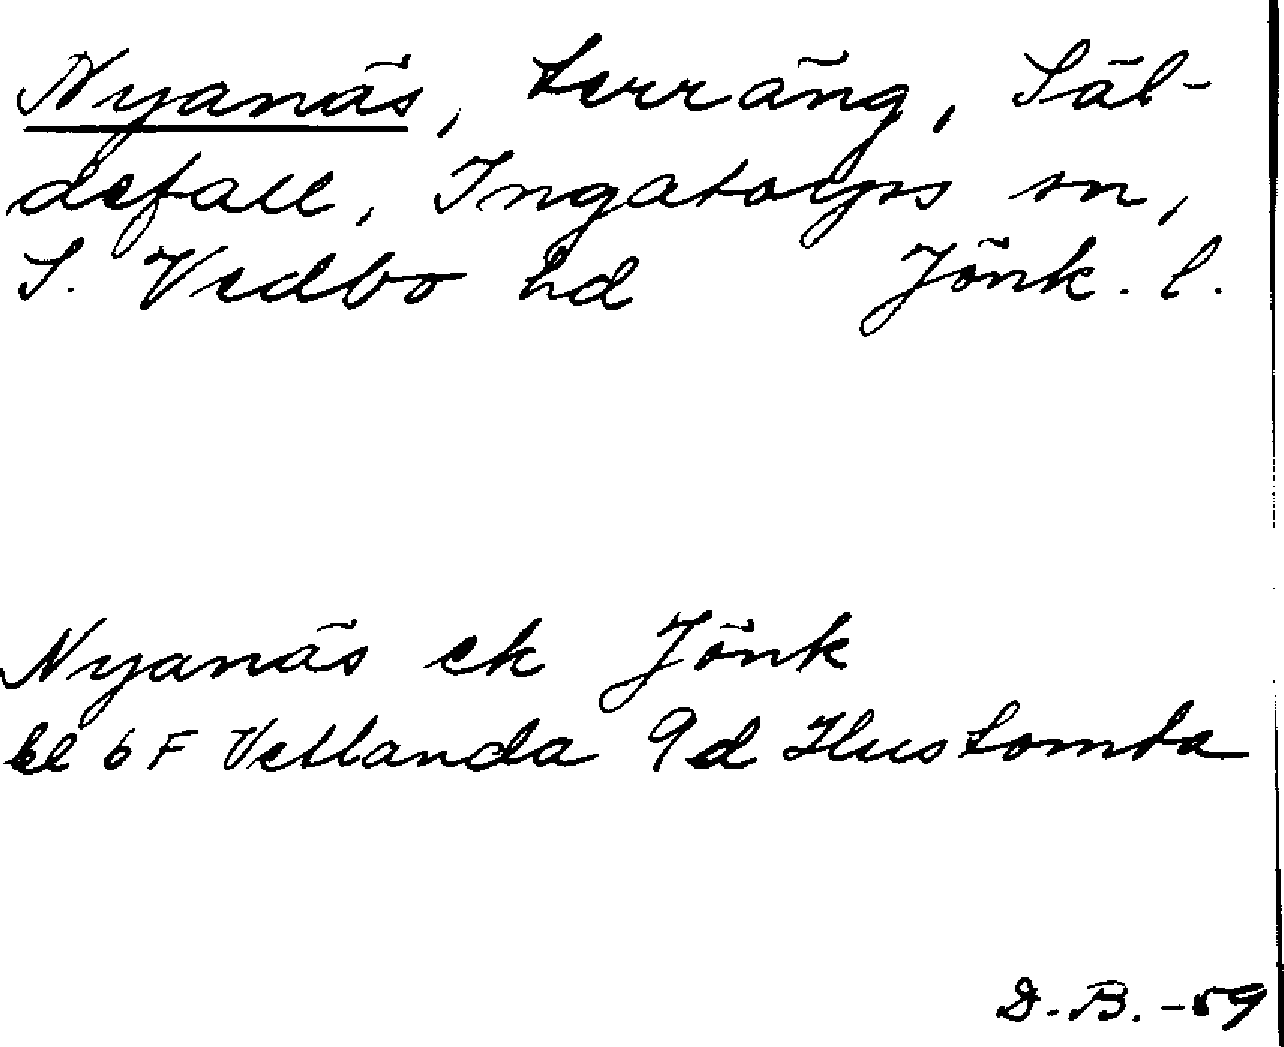 Nyanäs, terräng, Säl-
defall, Ingatorps sn,
S. Vedbo hd Jönk. l.
Nyanäs ek Jönk
bl 6 F Vetlanda 9d Hustomta
D.B. -59